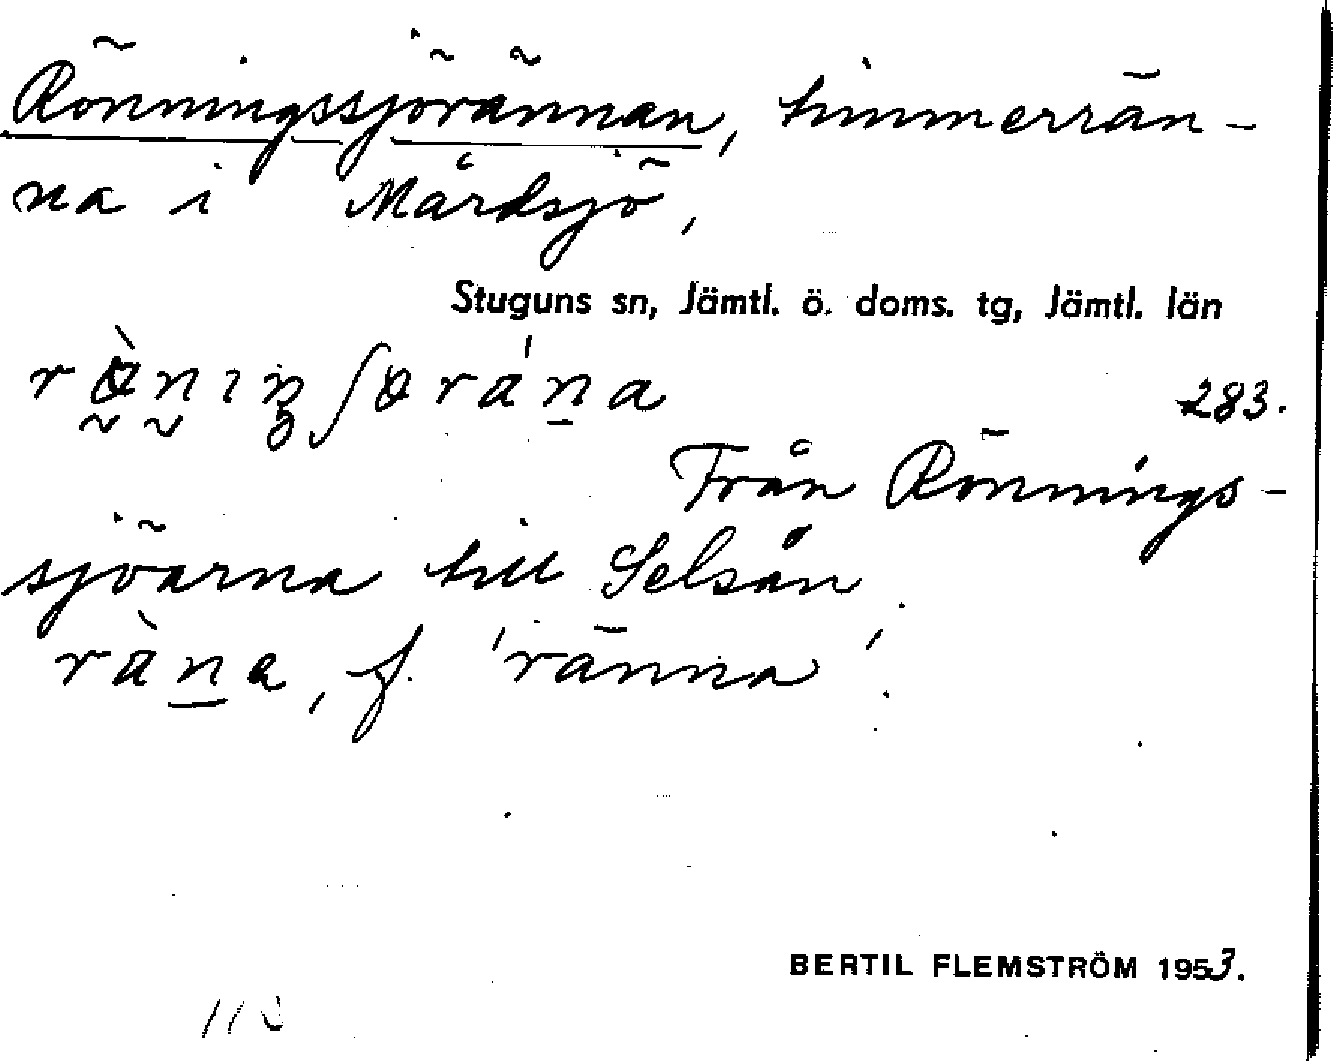 Rönningssjörännan, timmerrän-
na i Mårdsjö,
Stuguns sn, Jämtl. ö. doms. tg, Jämtl. län
283.
Från Rönnings-
sjöarna till Selsån.
räna, f. 'ränna'.
BERTIL FLEMSTRÖM 1953.